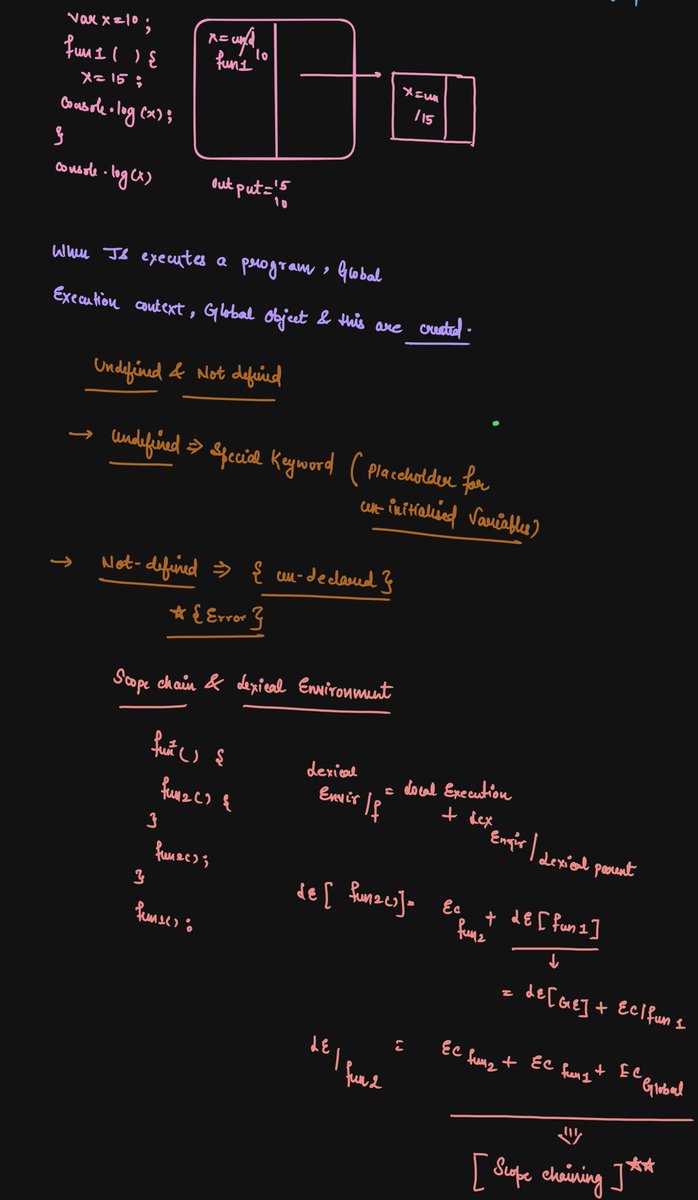 var x=10;
fun1 ( ) {
x=15;
console.log(x);
}
console.log(x)
x=und
10
fun1
x=un
/15
output=15
10
When JS executes a program, Global
Execution context, Global Object & this are created.
Undefined & Not defined
→ undefined ⇒ Special Keyword (Placeholder for
un-initialised Variables)
→ Not-defined ⇒ { un-declared }
★ {Error}
Scope chain & Lexical Environment
fun1() {
fun2() {
}
fun2();
}
fun1();
Lexical
Envir/f = Local Execution
+ Lex
Envir/Lexical parent
LE[ fun2()]= Ec fun2 + LE[fun1]
↓
= LE[GE] + Ec/fun1
LE/fun2 = Ec fun2 + Ec fun1 + Ec Global
[Scope chaining]★★